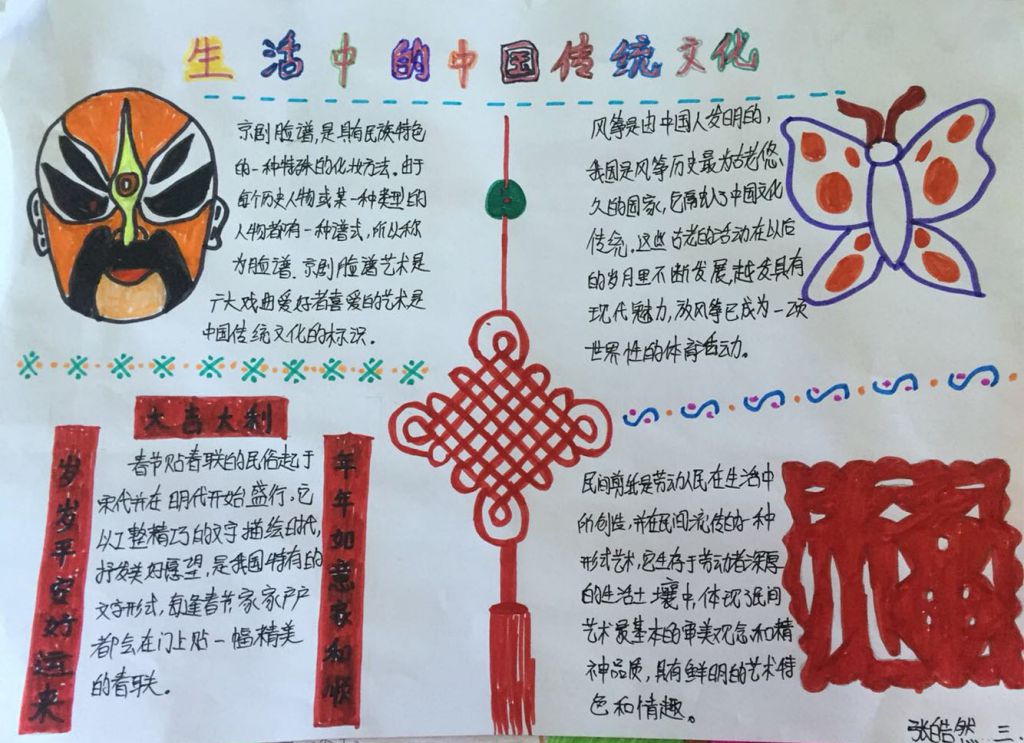 生活中的中国传统文化
京剧脸谱,是具有民族特色
的一种特殊的化妆方法。由于
每个历史人物或某一种类型的
人物都有一种谱式,所以称
为脸谱.京剧脸谱艺术是
广大戏曲爱好者喜爱的艺术是
中国传统文化的标识.
风筝是由中国人发明的,
我国是风筝历史最为古老悠
久的国家,它融入了中国文化
传统.这些古老的活动在以后
的岁月里不断发展,越发具有
现代魅力,放风筝已成为一项
世界性的体育活动.
大吉大利
岁岁平安好运来
春节贴春联的民俗起于
宋代并在明代开始盛行.它
以工整精巧的文字描绘时代,
抒发美好愿望,是我国特有的
文学形式,每逢春节,家家户户
都会在门上贴一幅精美
的春联。
年年如意家和顺
民间剪纸是劳动人民在生活中
所创造,并在民间流传的一种
形式艺术,它生存于劳动者深厚
的生活土壤中,体现了民间
艺术最基本的审美观念和精
神品质,具有鲜明的艺术特
色和情趣。
福
张皓然 三.